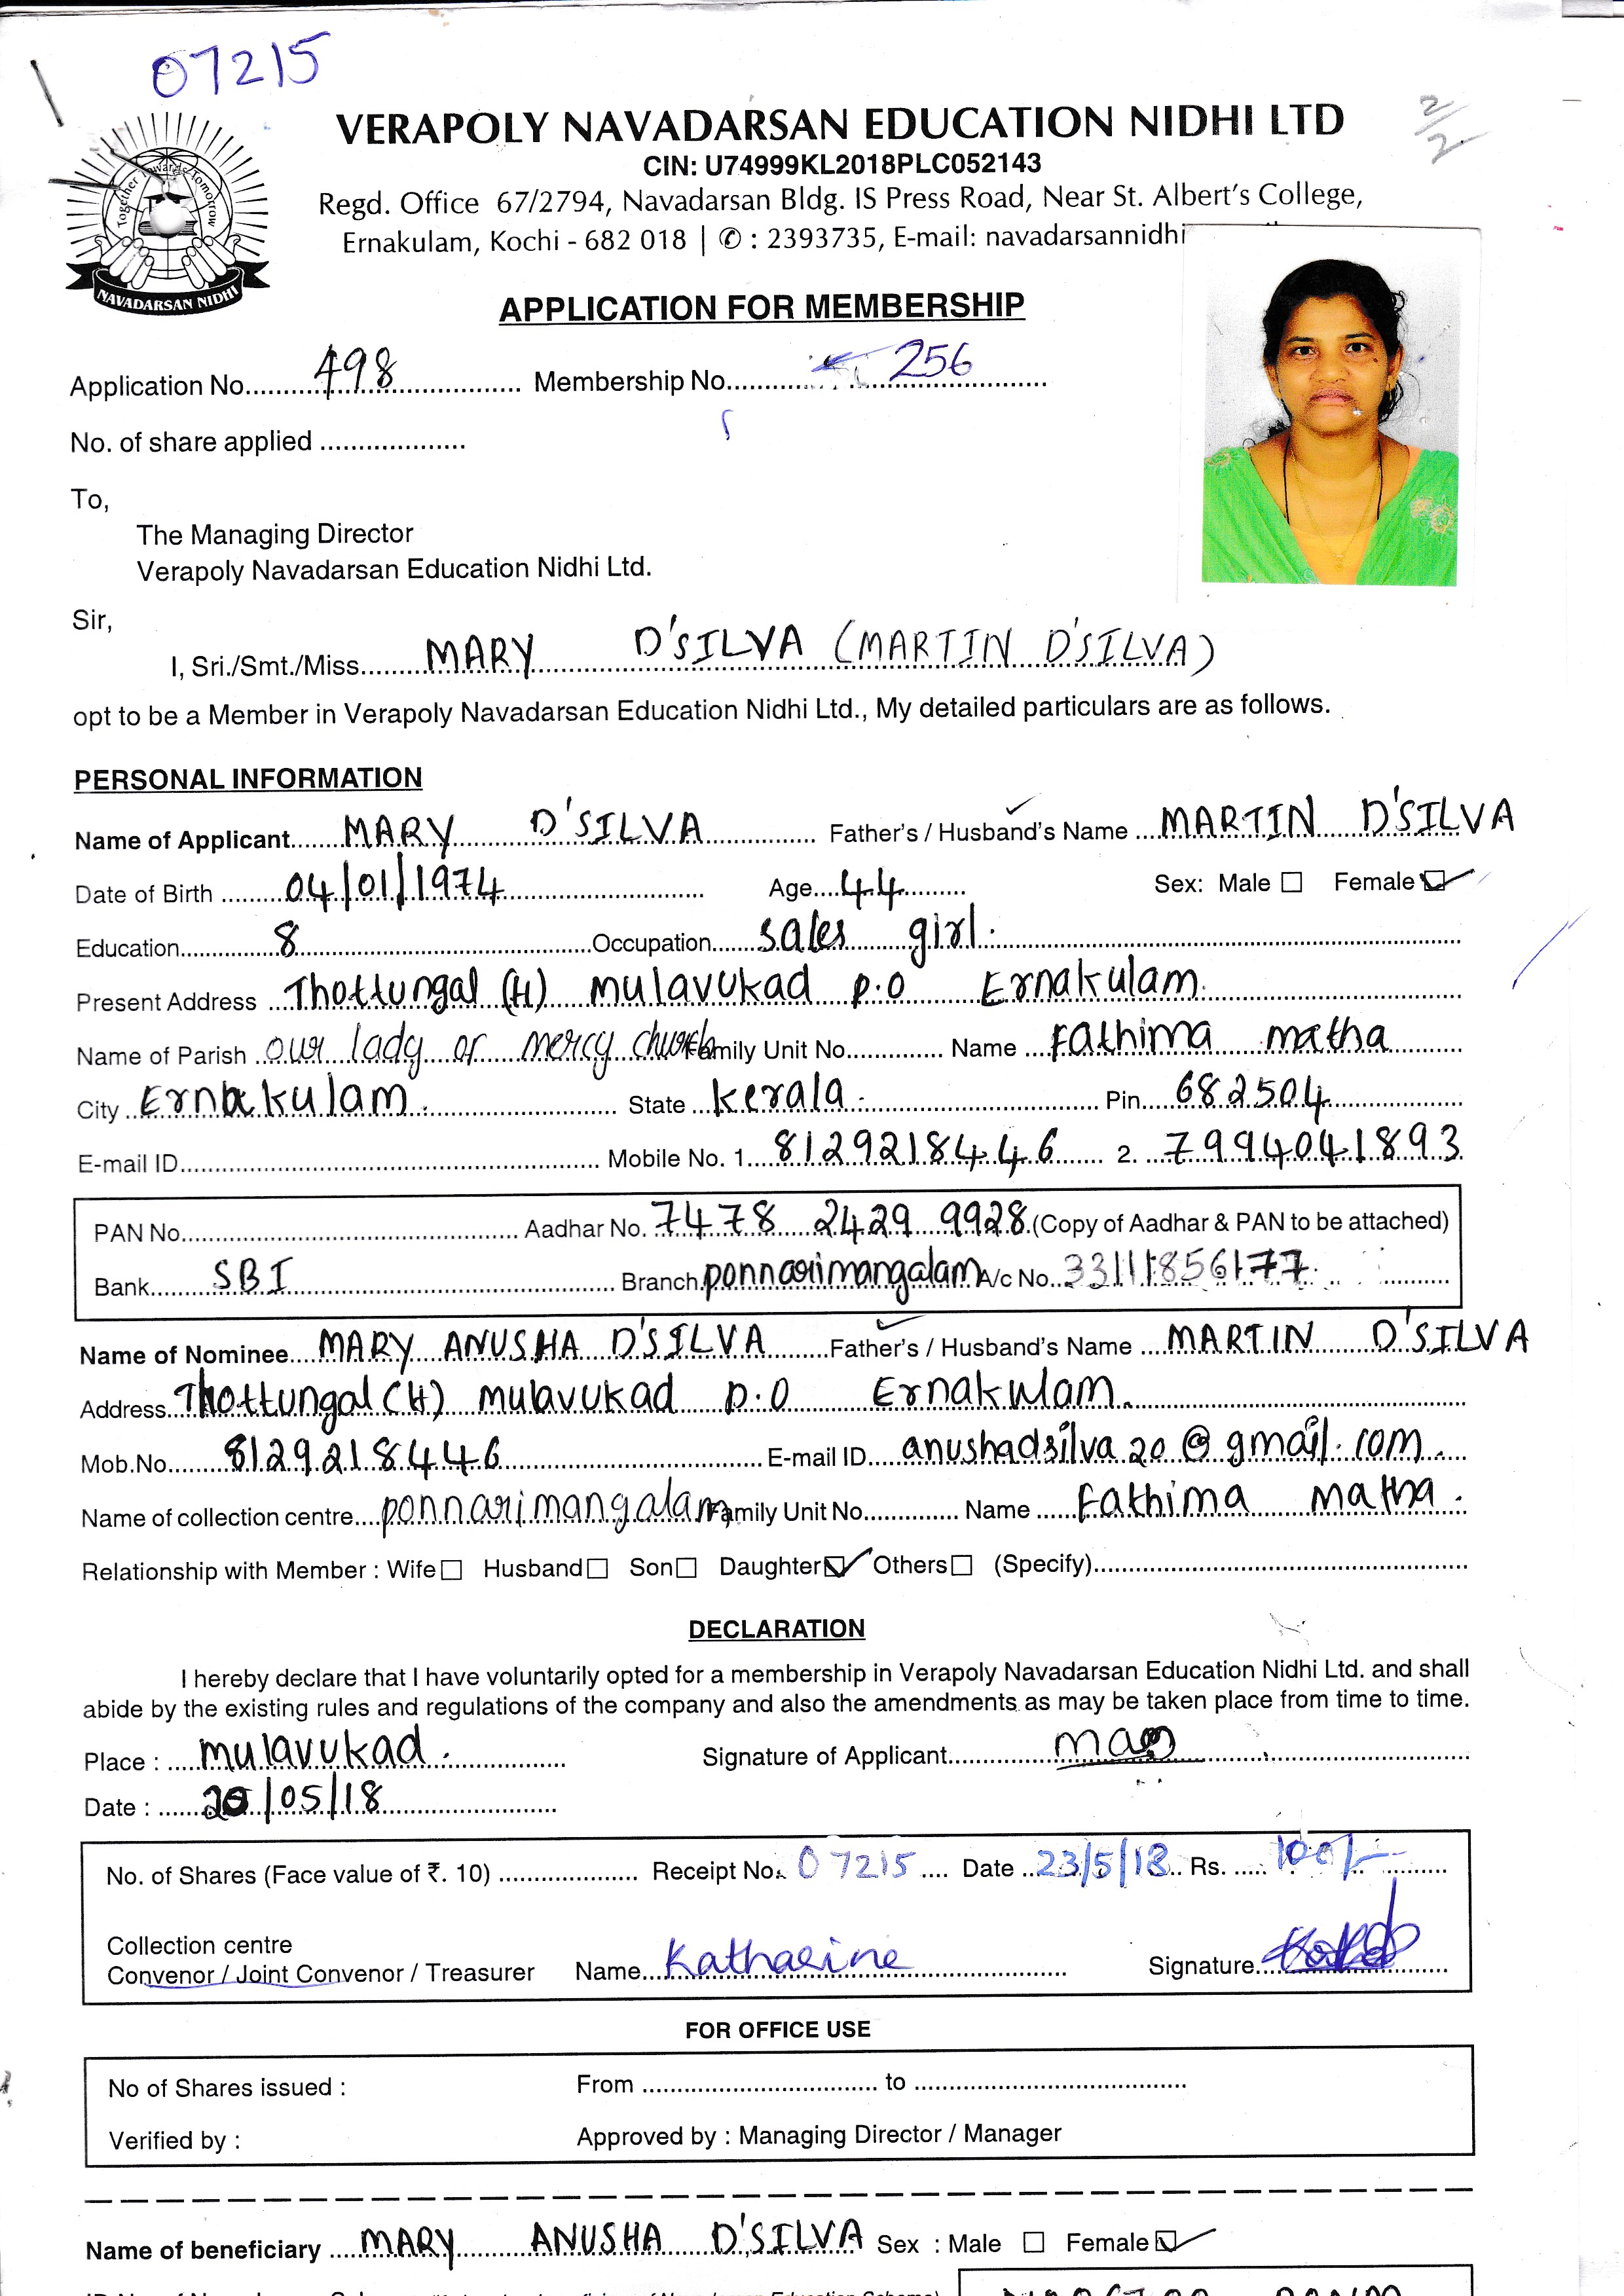 07215
2/2
VERAPOLY NAVADARSAN EDUCATION NIDHI LTD
CIN: U74999KL2018PLC052143
Regd. Office 67/2794, Navadarsan Bldg. IS Press Road, Near St. Albert's College,
Ernakulam, Kochi - 682 018 | ✆ : 2393735, E-mail: navadarsannidhi
Together Towards Tomorrow
NAVADARSAN NIDHI
APPLICATION FOR MEMBERSHIP
Application No. 498 Membership No. 256
No. of share applied
To,
The Managing Director
Verapoly Navadarsan Education Nidhi Ltd.
Sir,
I, Sri./Smt./Miss. MARY D'SILVA (MARTIN D'SILVA)
opt to be a Member in Verapoly Navadarsan Education Nidhi Ltd., My detailed particulars are as follows.
PERSONAL INFORMATION
Name of Applicant MARY D'SILVA Father's / Husband's Name MARTIN D'SILVA
Date of Birth 04/01/1974 Age 44 Sex: Male ☐ Female ☑
Education 8 Occupation sales girl.
Present Address Thottungal (H) mulavukad p.o Ernakulam.
Name of Parish our lady of mercy church Family Unit No. Name Fathima matha
City Ernakulam. State kerala. Pin 682504
E-mail ID Mobile No. 1. 8129218446 2. 7994041893
PAN No. Aadhar No. 7478 2429 9928 (Copy of Aadhar & PAN to be attached)
Bank SBI Branch ponnarimangalam A/c No. 33111856177
Name of Nominee MARY ANUSHA D'SILVA Father's / Husband's Name MARTIN D'SILVA
Address Thottungal (H) mulavukad p.o Ernakulam.
Mob.No. 8129218446 E-mail ID anushadsilva20@gmail.com.
Name of collection centre ponnarimangalam Family Unit No. Name Fathima Matha.
Relationship with Member : Wife ☐ Husband ☐ Son ☐ Daughter ☑ Others ☐ (Specify)
DECLARATION
I hereby declare that I have voluntarily opted for a membership in Verapoly Navadarsan Education Nidhi Ltd. and shall
abide by the existing rules and regulations of the company and also the amendments as may be taken place from time to time.
Place : mulavukad. Signature of Applicant
Date : 20/05/18
No. of Shares (Face value of ₹. 10) Receipt No. 07215 Date 23/5/18 Rs. 100/-
Collection centre
Convenor / Joint Convenor / Treasurer Name Katharine Signature
FOR OFFICE USE
No of Shares issued : From to
Verified by : Approved by : Managing Director / Manager
Name of beneficiary MARY ANUSHA D'SILVA Sex : Male ☐ Female ☑